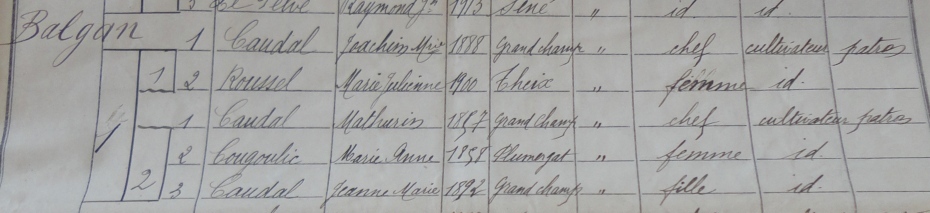 3 Le Pelve Raymond Jn 1913 Séné " id. id.
Balgan 1 Caudal Joachim Mrie 1888 Grandchamp " chef cultivateur patron
1 2 Roussel Marie Julienne 1900 Theix " femme id.
1 Caudal Mathurin 1857 Grandchamp " chef cultivateur patron
2 Cougoulic Marie Anne 1858 Plumergat " femme id.
2 3 Caudal Jeanne Marie 1892 Grandchamp " fille id.